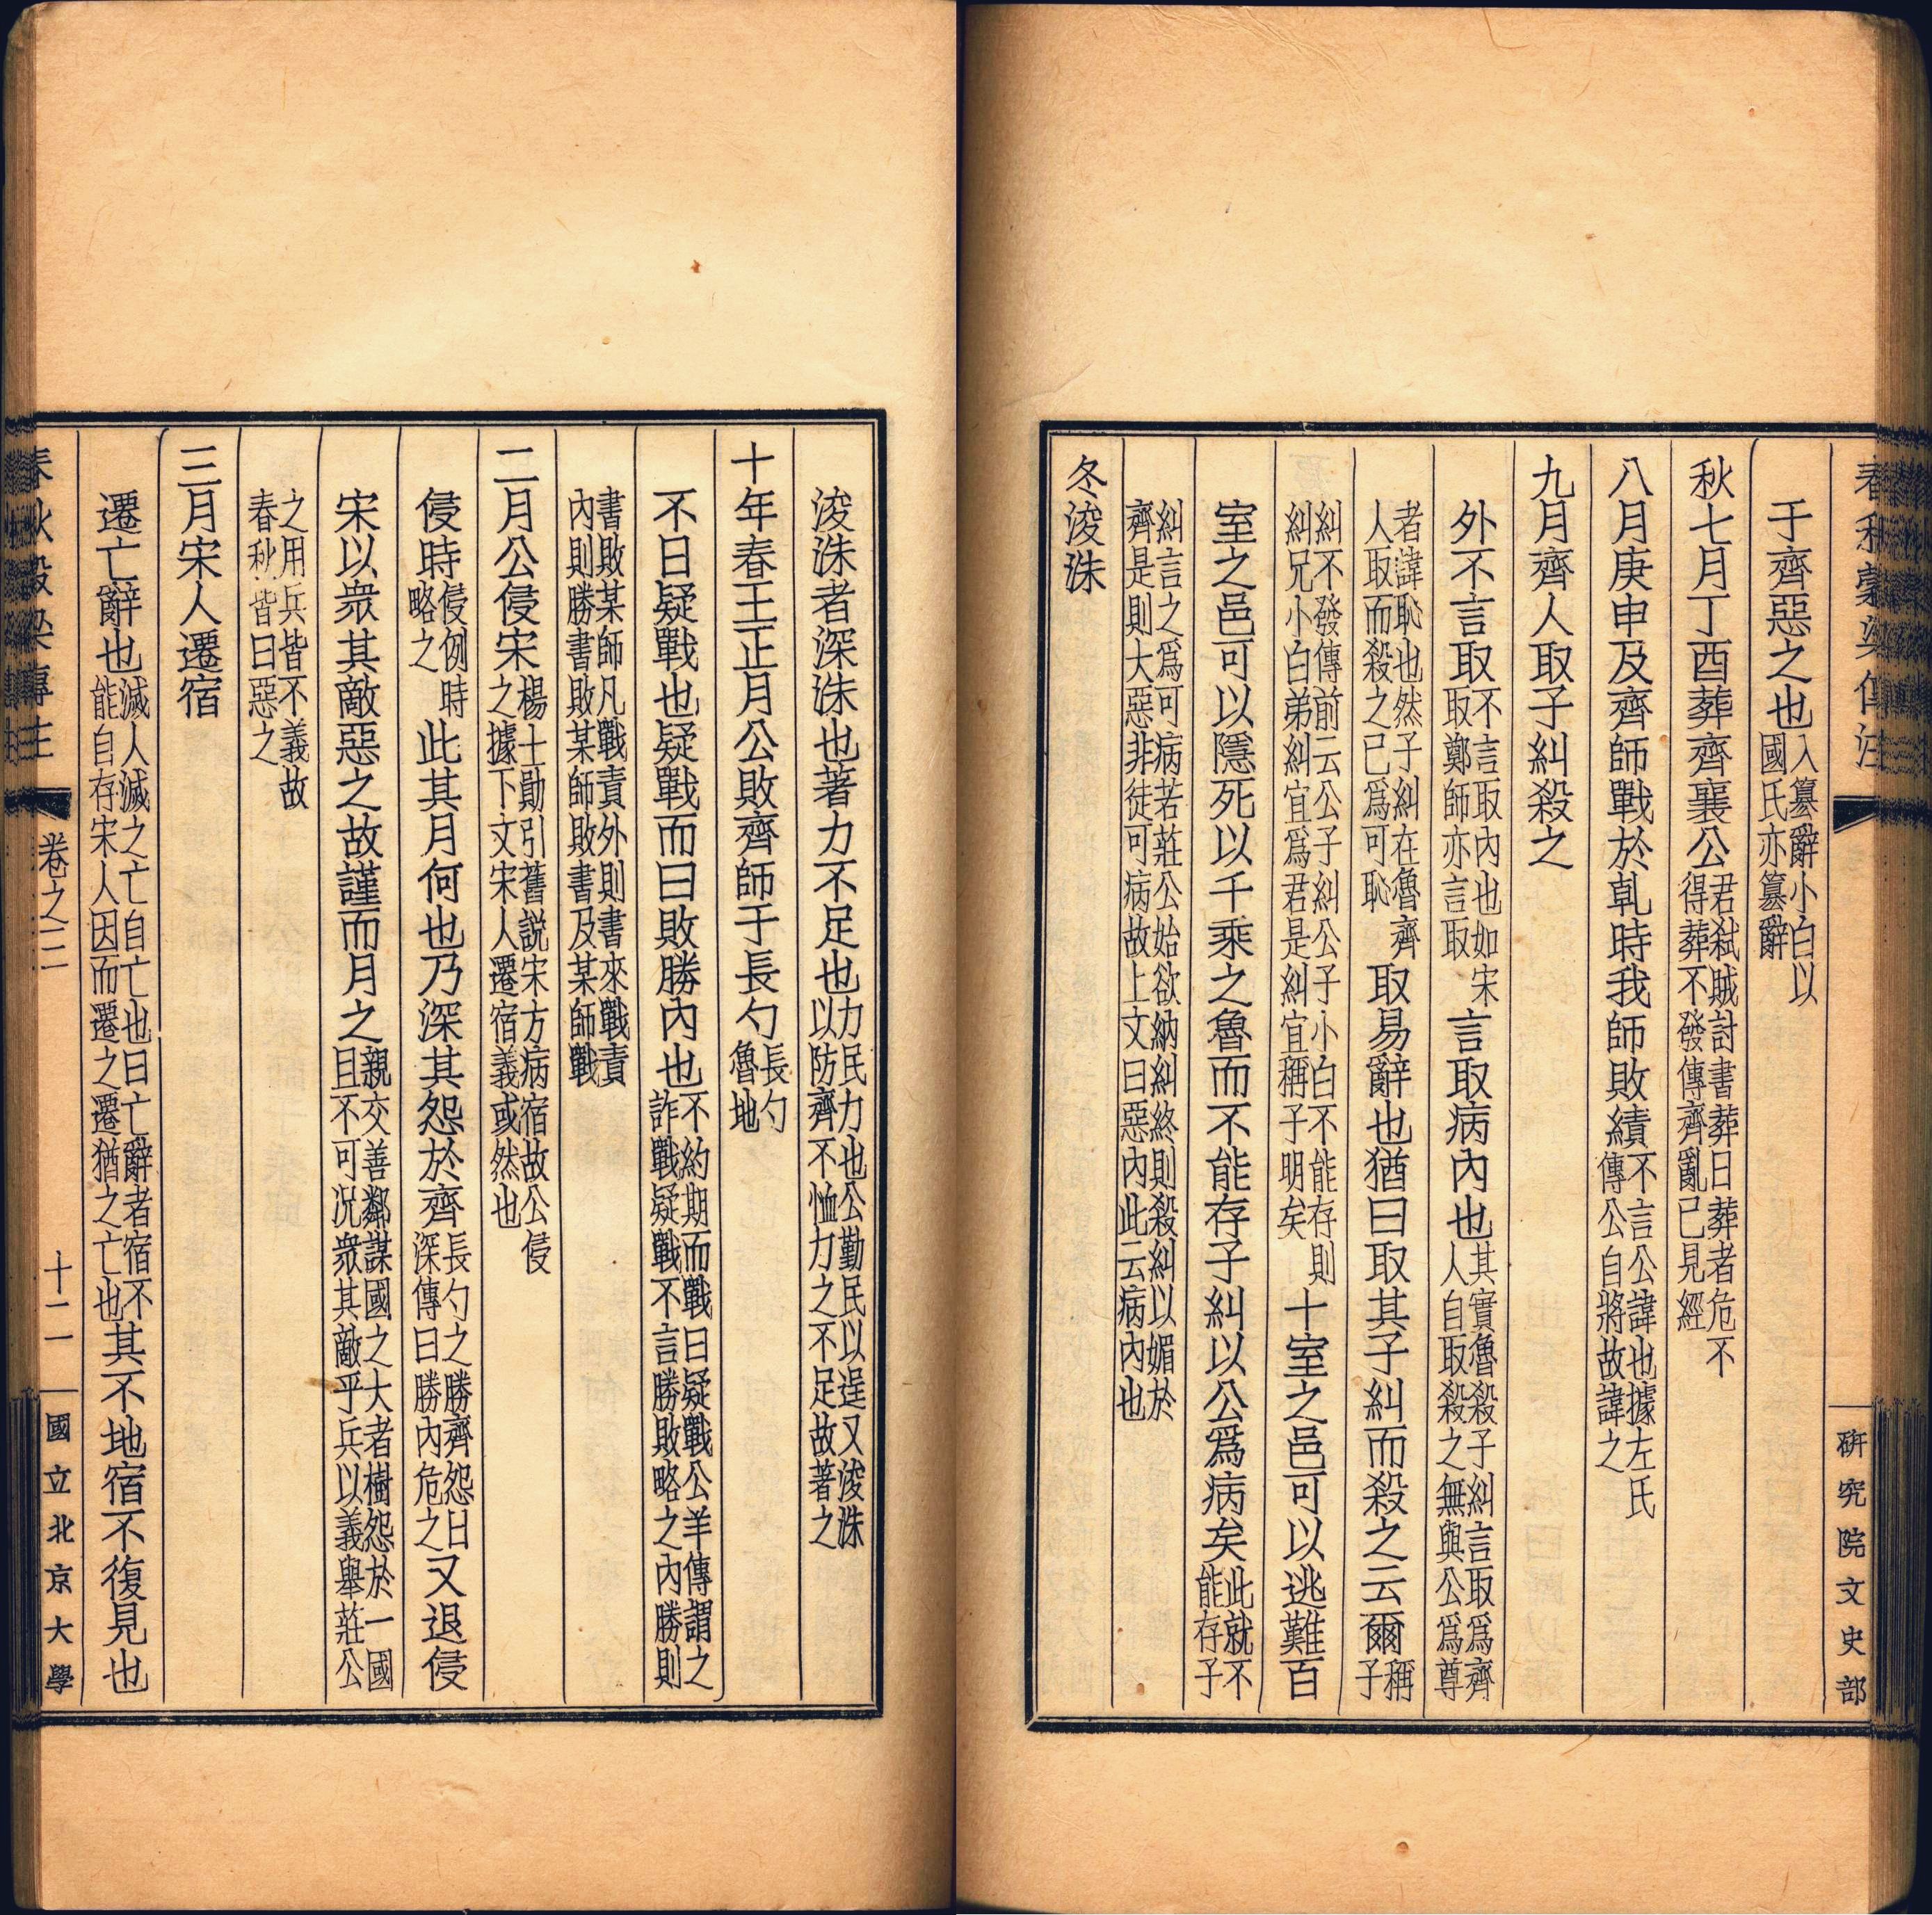 春秋穀梁傳注
研究院文史部
于齊惡之也入篡辭小白以國氏亦篡辭
秋七月丁酉葬齊襄公君弑賊討書葬日葬者危不得葬不發傳齊亂已見經
八月庚申及齊師戰於乹時我師敗績不言公諱也據左氏傳公自將故諱之
九月齊人取子糾殺之
外不言取不言取內也如宋取鄭師亦言取言取病內也其實魯殺子糾言取爲齊人自取殺之無與公爲尊
者諱恥也然子糾在魯齊人取而殺之已爲可恥取易辭也猶曰取其子糾而殺之云爾稱子
糾不發傳前云公子糾公子小白不能存則糾兄小白弟糾宜爲君是糾宜稱子明矣十室之邑可以逃難百
室之邑可以隱死以千乘之魯而不能存子糾以公爲病矣此就不能存子
糾言之爲可病若莊公始欲納糾終則殺糾以媚於齊是則大惡非徒可病故上文曰惡內此云病內也
冬浚洙
浚洙者深洙也著力不足也力民力也公勤民以逞又浚洙以防齊不恤力之不足故著之
十年春王正月公敗齊師于長勺長勺魯地
不日疑戰也疑戰而曰敗勝內也不約期而戰曰疑戰公羊傳謂之詐戰疑戰不言勝敗略之內勝則
書敗某師凡戰責外則書來戰責內則勝書敗某師敗書及某師戰
二月公侵宋楊士勛引舊説宋方病宿故公侵之據下文宋人遷宿義或然也
侵時侵例時略之此其月何也乃深其怨於齊長勺之勝齊怨日深傳曰勝內危之又退侵
宋以衆其敵惡之故謹而月之親交善鄰謀國之大者樹怨於一國且不可況衆其敵乎兵以義舉莊公
之用兵皆不義故春秋皆曰惡之
三月宋人遷宿
遷亡辭也滅人滅之亡自亡也曰亡辭者宿不能自存宋人因而遷之遷猶之亡也其不地宿不復見也
春秋穀梁傳注
卷之二
十二
國立北京大學